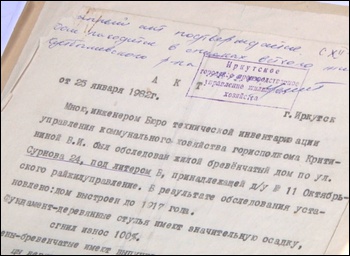 данный акт подтверждение
дом находится в
р-на
СХУ
Иркутское
управление
хозяйства
А К Т
от 25 января 1982г.
г.Иркутск
Мною, инженером Бюро технической инвентаризации
управления коммунального хозяйства горисполкома Крити-
ниной Е.И. был обследован жилой бревенчатый дом по ул.
Сурнова 24, под литером Б, принадлежащей р/у № 11 Октябрь-
ского райжилуправление. В результате обследования уста-
новлено: дом выстроен до 1917 года.
Фундамент-деревянные стулья имеет значительную осадку,
сгнил износ 100%.
ны-бревенчатые имеют